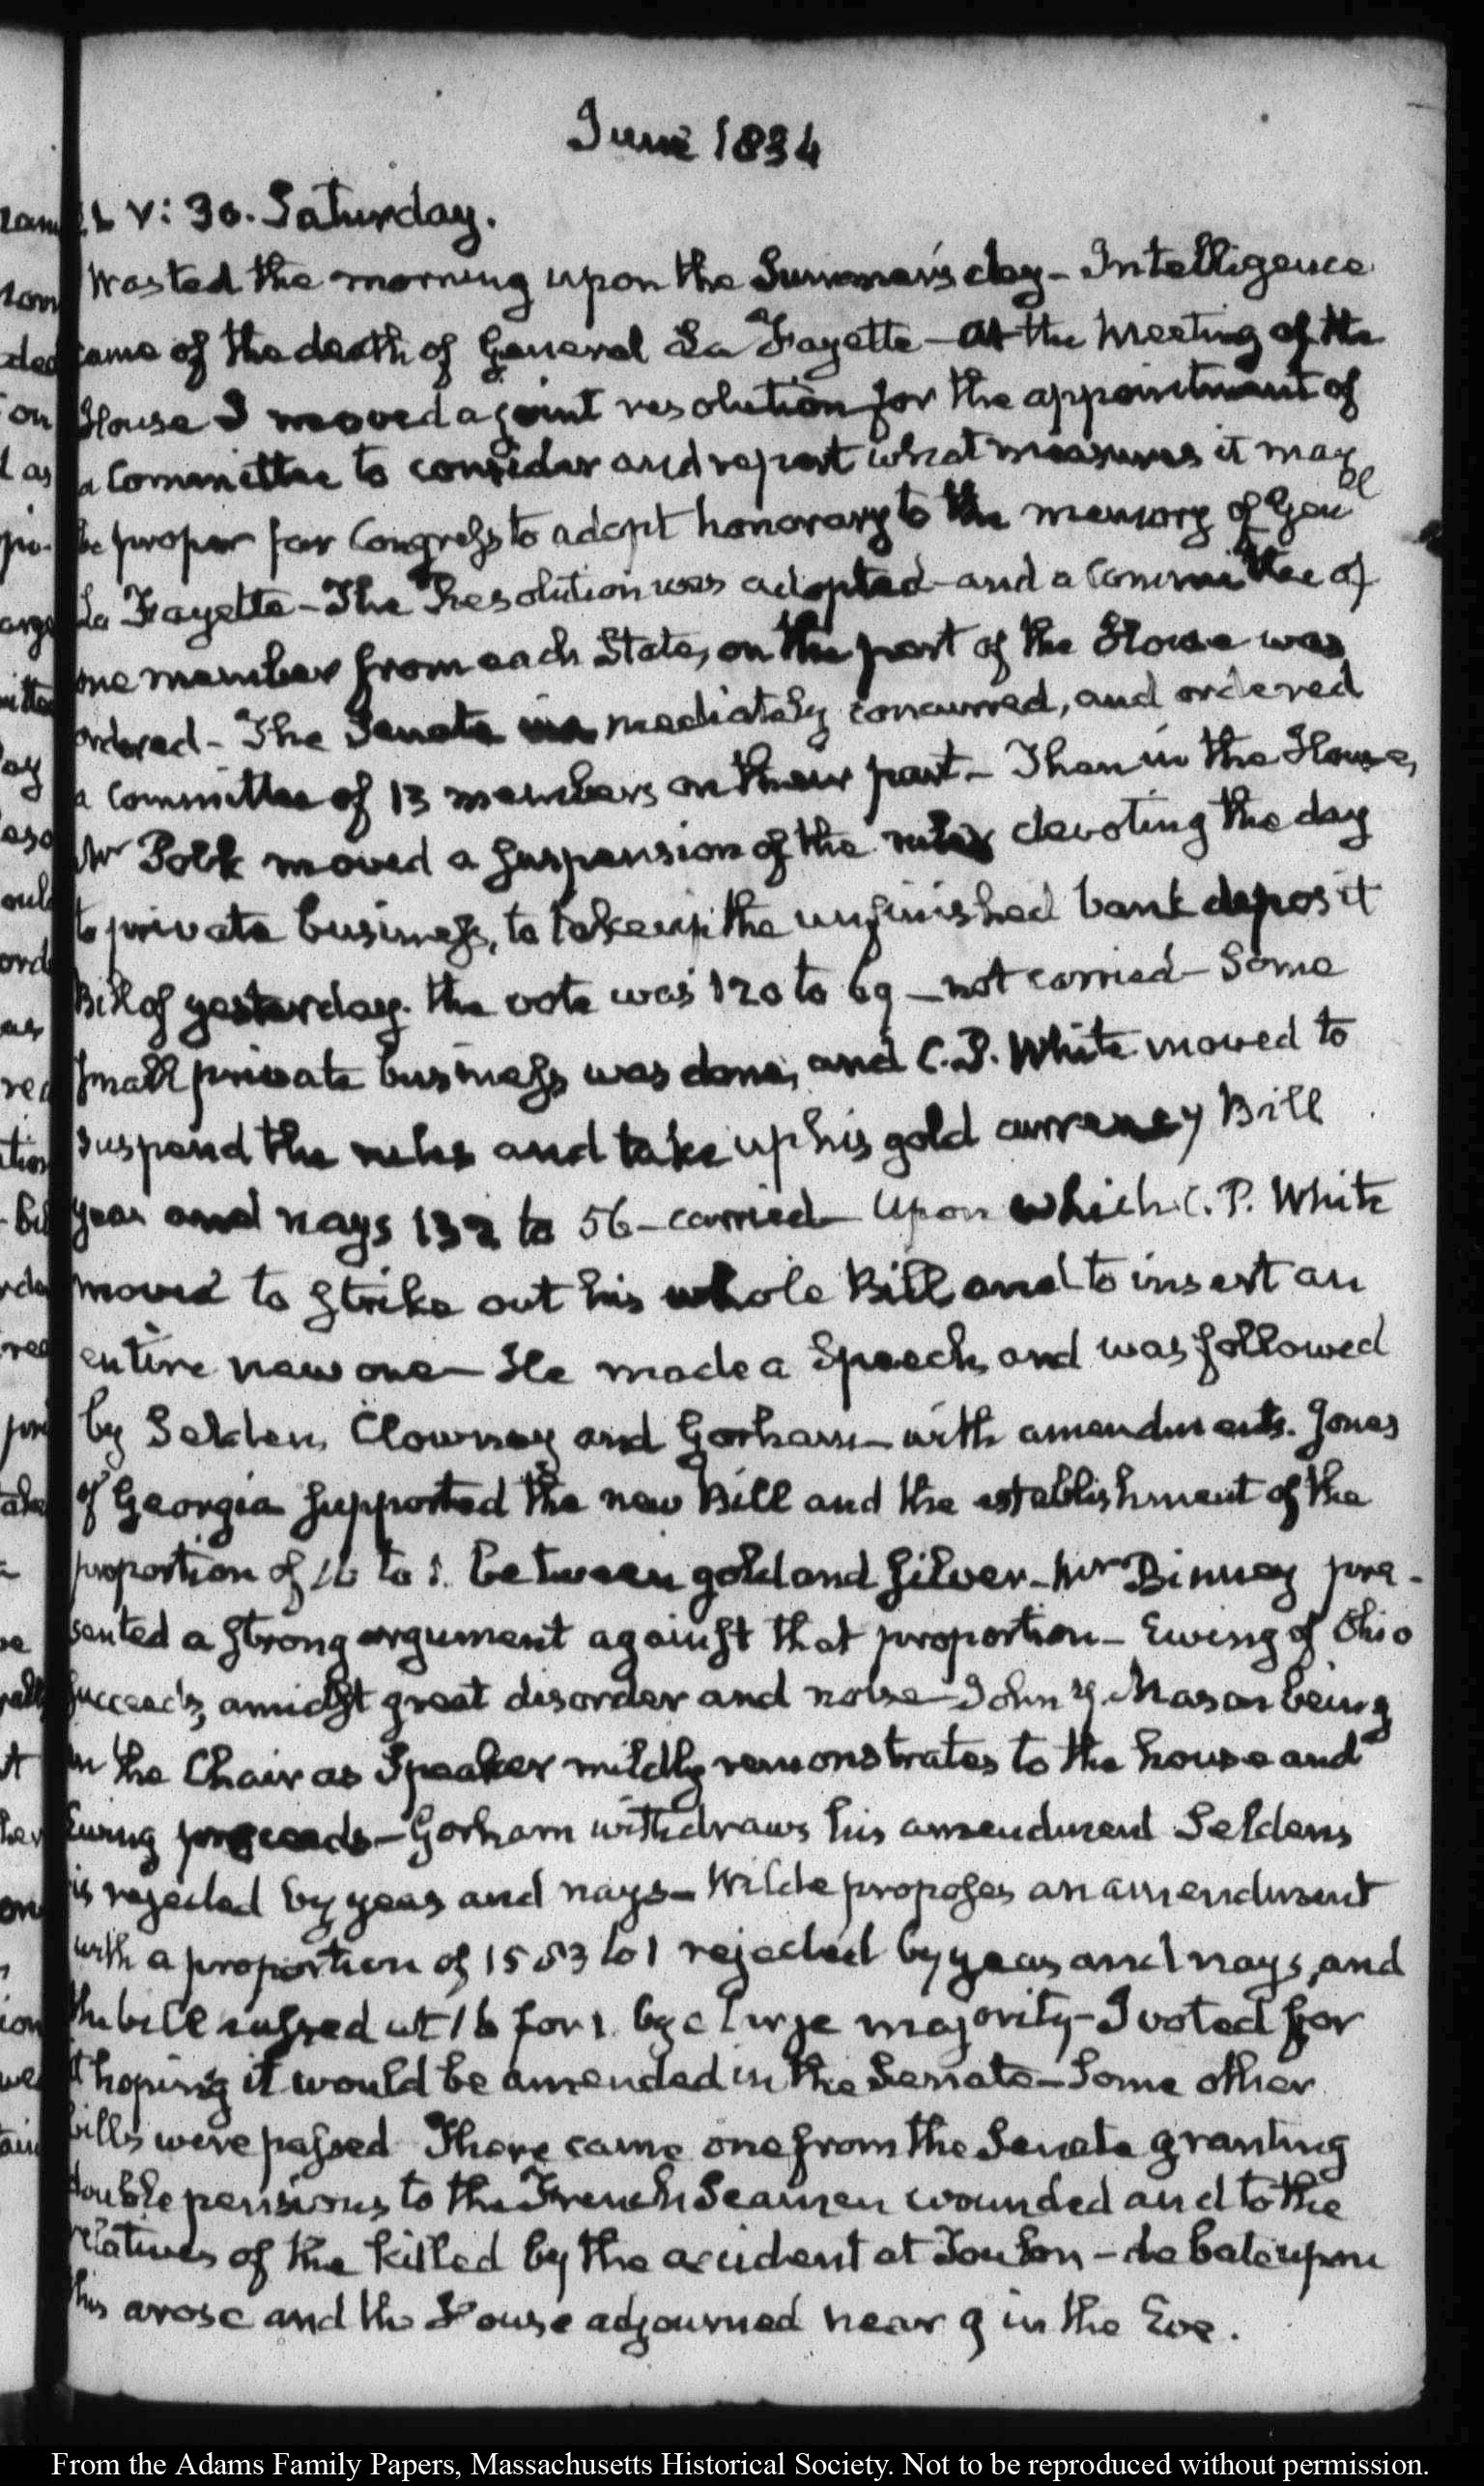 June 1834
V: 30. Saturday.
Wasted the morning upon the Summer's day – Intelligence
came of the death of General La Fayette – At the Meeting of the
House I moved a joint resolution for the appointment of
a Committee to consider and report what measures it may
be proper for Congress to adopt honorary to the memory of Genl
La Fayette – The Resolution was adopted – and a Committee of
one member from each State, on the part of the House was
ordered – The Senate immediately concurred, and ordered
a Committee of 13 members on their part – Then in the House,
Mr Polk moved a suspension of the rules devoting the day
to private business, to take up the unfinished bank deposit
Bill of yesterday. the vote was 120 to 69 – not carried – Some
small private business was done, and C. P. White moved to
suspend the rules and take up his gold currency Bill
yeas and nays 132 to 56 – carried – Upon which C. P. White
moved to strike out his whole Bill and to insert an
entire new one – He made a Speech, and was followed
by Selden, Clowney and Gorham – with amendments. Jones
of Georgia supported the new Bill and the establishment of the
proportion of 16 to 1. between gold and silver – Mr Binney pre-
sented a strong argument against that proportion – Ewing of Ohio
succeeds, amidst great disorder and noise – John Y. Mason being
in the Chair as Speaker mildly remonstrates to the house and
Ewing proceeds – Gorham withdraws his amendment Seldens
is rejected by yeas and nays – Wilde proposes an amendment
with a proportion of to 1 rejected by yeas and nays, and
the bill passed at 16 for 1. by a large majority – I voted for
it hoping it would be amended in the Senate – Some other
bills were passed There came one from the Senate granting
double pensions to the French Seamen wounded and to the
relatives of the killed by the accident at Toulon – debate upon
this arose and the House adjourned near 9 in the Eve.
From the Adams Family Papers, Massachusetts Historical Society. Not to be reproduced without permission.